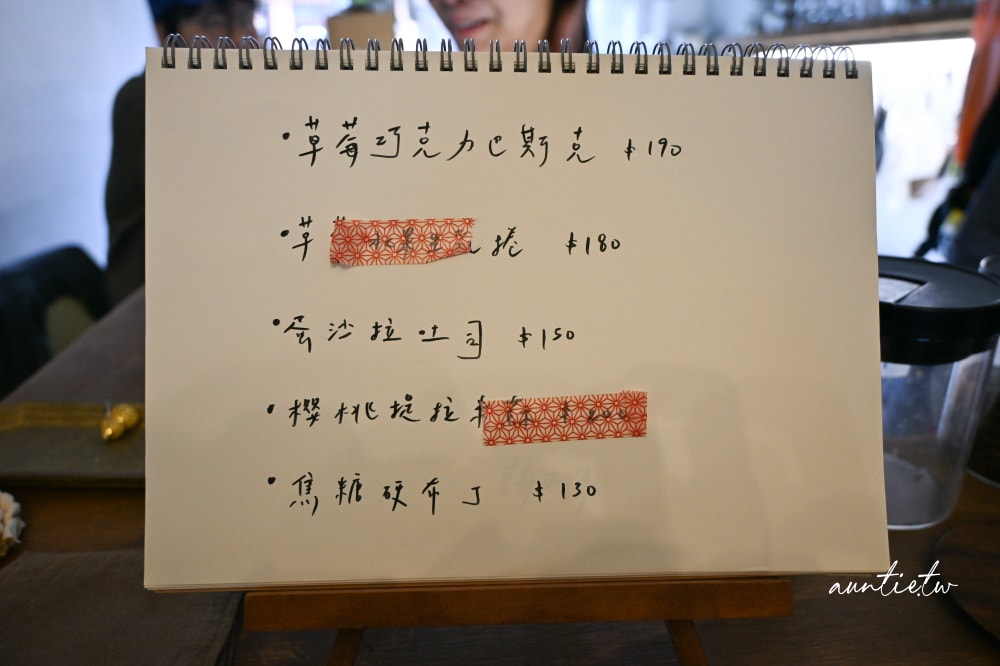 •草莓巧克力巴斯克 $190
•草 捲 $180
•蛋沙拉吐司 $150
•櫻桃提拉
•焦糖硬布丁 $130
auntie.tw